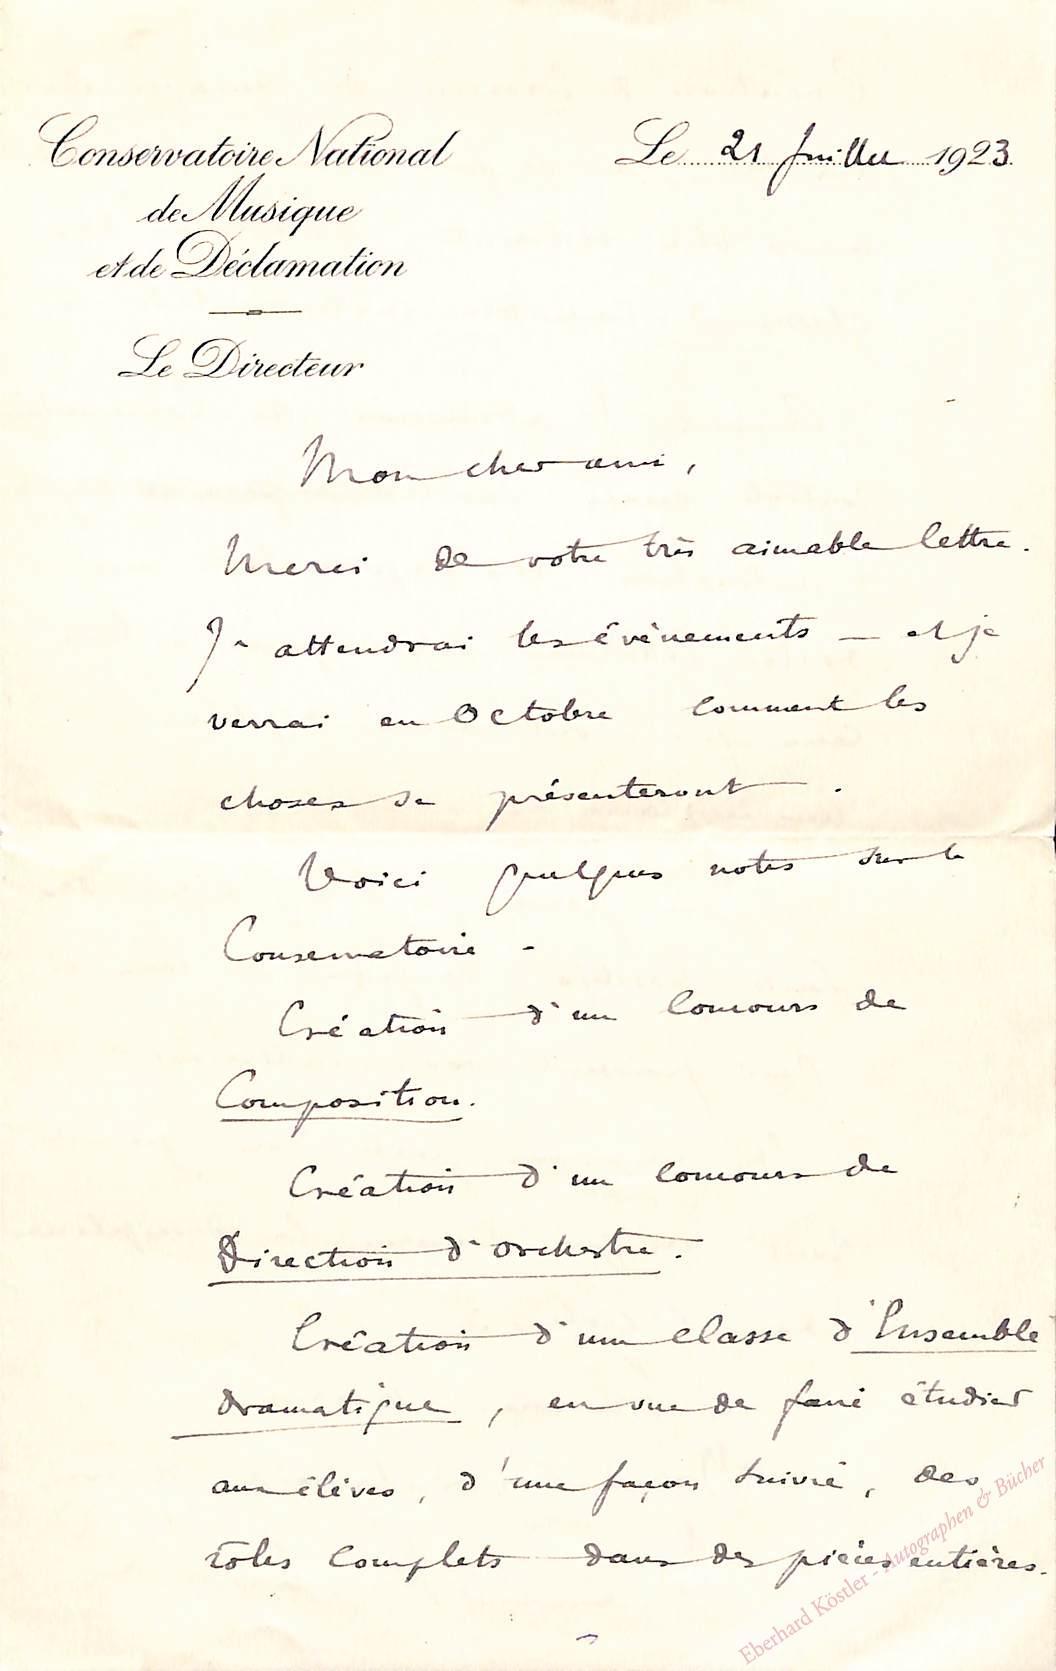 Conservatoire National
de Musique
et de Déclamation
Le Directeur
Le 21 Juillet 1923.
Mon cher ami,
Merci de votre très aimable lettre.
Je attendrai les évènements — et je
verrai en Octobre comment les
choses se présenteront.
Voici quelques notes sur le
Conservatoire -
Création d'un concours de
Composition.
Création d'un concours de
Direction d'orchestre.
Création d'une classe d'Ensemble
dramatique, en vue de faire étudier
aux élèves, d'une façon suivie, des
rôles complets dans des pièces entières.
Eberhard Köstler - Autographen & Bücher